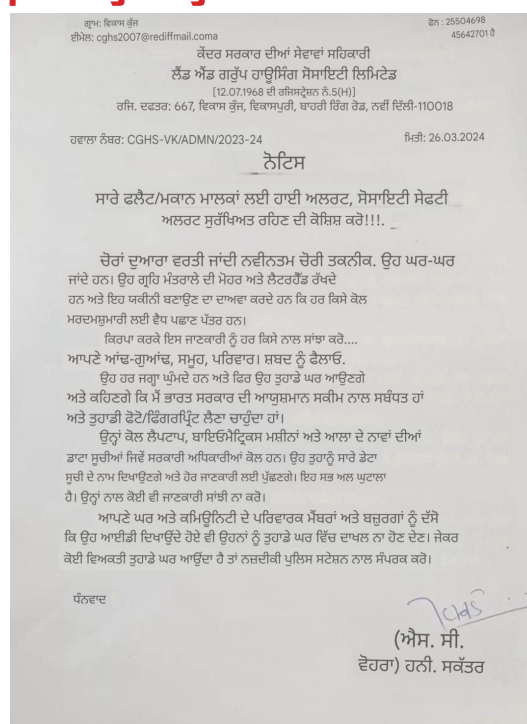 ਗ੍ਰਾਮ: ਵਿਕਾਸ ਕੁੰਜ
ਫੋਨ : 25504698
ਈਮੇਲ: cghs2007@rediffmail.coma
45642701 ਹੈ
ਕੇਂਦਰ ਸਰਕਾਰ ਦੀਆਂ ਸੇਵਾਵਾਂ ਸਹਿਕਾਰੀ
ਲੈਂਡ ਐਂਡ ਗਰੁੱਪ ਹਾਊਸਿੰਗ ਸੋਸਾਇਟੀ ਲਿਮਿਟੇਡ
[12.07.1968 ਦੀ ਰਜਿਸਟ੍ਰੇਸ਼ਨ ਨੰ.5(H)]
ਰਜਿ. ਦਫਤਰ: 667, ਵਿਕਾਸ ਕੁੰਜ, ਵਿਕਾਸਪੁਰੀ, ਬਾਹਰੀ ਰਿੰਗ ਰੋਡ, ਨਵੀਂ ਦਿੱਲੀ-110018
ਹਵਾਲਾ ਨੰਬਰ: CGHS-VK/ADMN/2023-24
ਮਿਤੀ: 26.03.2024
ਨੋਟਿਸ
ਸਾਰੇ ਫਲੈਟ/ਮਕਾਨ ਮਾਲਕਾਂ ਲਈ ਹਾਈ ਅਲਰਟ, ਸੋਸਾਇਟੀ ਸੇਫਟੀ
ਅਲਰਟ ਸੁਰੱਖਿਅਤ ਰਹਿਣ ਦੀ ਕੋਸ਼ਿਸ਼ ਕਰੋ!!!.
ਚੋਰਾਂ ਦੁਆਰਾ ਵਰਤੀ ਜਾਂਦੀ ਨਵੀਨਤਮ ਚੋਰੀ ਤਕਨੀਕ. ਉਹ ਘਰ-ਘਰ
ਜਾਂਦੇ ਹਨ। ਉਹ ਗ੍ਰਹਿ ਮੰਤਰਾਲੇ ਦੀ ਮੋਹਰ ਅਤੇ ਲੈਟਰਹੈੱਡ ਰੱਖਦੇ
ਹਨ ਅਤੇ ਇਹ ਯਕੀਨੀ ਬਣਾਉਣ ਦਾ ਦਾਅਵਾ ਕਰਦੇ ਹਨ ਕਿ ਹਰ ਕਿਸੇ ਕੋਲ
ਮਰਦਮਸ਼ੁਮਾਰੀ ਲਈ ਵੈਧ ਪਛਾਣ ਪੱਤਰ ਹਨ।
ਕਿਰਪਾ ਕਰਕੇ ਇਸ ਜਾਣਕਾਰੀ ਨੂੰ ਹਰ ਕਿਸੇ ਨਾਲ ਸਾਂਝਾ ਕਰੋ....
ਆਪਣੇ ਆਂਢ-ਗੁਆਂਢ, ਸਮੂਹ, ਪਰਿਵਾਰ। ਸ਼ਬਦ ਨੂੰ ਫੈਲਾਓ.
ਉਹ ਹਰ ਜਗ੍ਹਾ ਘੁੰਮਦੇ ਹਨ ਅਤੇ ਫਿਰ ਉਹ ਤੁਹਾਡੇ ਘਰ ਆਉਣਗੇ
ਅਤੇ ਕਹਿਣਗੇ ਕਿ ਮੈਂ ਭਾਰਤ ਸਰਕਾਰ ਦੀ ਆਯੁਸ਼ਮਾਨ ਸਕੀਮ ਨਾਲ ਸਬੰਧਤ ਹਾਂ
ਅਤੇ ਤੁਹਾਡੀ ਫੋਟੋ/ਫਿੰਗਰਪ੍ਰਿੰਟ ਲੈਣਾ ਚਾਹੁੰਦਾ ਹਾਂ।
ਉਨ੍ਹਾਂ ਕੋਲ ਲੈਪਟਾਪ, ਬਾਇਓਮੈਟ੍ਰਿਕਸ ਮਸ਼ੀਨਾਂ ਅਤੇ ਆਲਾ ਦੇ ਨਾਵਾਂ ਦੀਆਂ
ਡਾਟਾ ਸੂਚੀਆਂ ਜਿਵੇਂ ਸਰਕਾਰੀ ਅਧਿਕਾਰੀਆਂ ਕੋਲ ਹਨ। ਉਹ ਤੁਹਾਨੂੰ ਸਾਰੇ ਡੇਟਾ
ਸੂਚੀ ਦੇ ਨਾਮ ਦਿਖਾਉਣਗੇ ਅਤੇ ਹੋਰ ਜਾਣਕਾਰੀ ਲਈ ਪੁੱਛਣਗੇ। ਇਹ ਸਭ ਅਲ ਘੁਟਾਲਾ
ਹੈ। ਉਨ੍ਹਾਂ ਨਾਲ ਕੋਈ ਵੀ ਜਾਣਕਾਰੀ ਸਾਂਝੀ ਨਾ ਕਰੋ।
ਆਪਣੇ ਘਰ ਅਤੇ ਕਮਿਊਨਿਟੀ ਦੇ ਪਰਿਵਾਰਕ ਮੈਂਬਰਾਂ ਅਤੇ ਬਜ਼ੁਰਗਾਂ ਨੂੰ ਦੱਸੋ
ਕਿ ਉਹ ਆਈਡੀ ਦਿਖਾਉਂਦੇ ਹੋਏ ਵੀ ਉਹਨਾਂ ਨੂੰ ਤੁਹਾਡੇ ਘਰ ਵਿੱਚ ਦਾਖਲ ਨਾ ਹੋਣ ਦੇਣ। ਜੇਕਰ
ਕੋਈ ਵਿਅਕਤੀ ਤੁਹਾਡੇ ਘਰ ਆਉਂਦਾ ਹੈ ਤਾਂ ਨਜ਼ਦੀਕੀ ਪੁਲਿਸ ਸਟੇਸ਼ਨ ਨਾਲ ਸੰਪਰਕ ਕਰੋ।
ਧੰਨਵਾਦ
(ਐਸ. ਸੀ.
ਵੋਹਰਾ) ਹਨੀ. ਸਕੱਤਰ